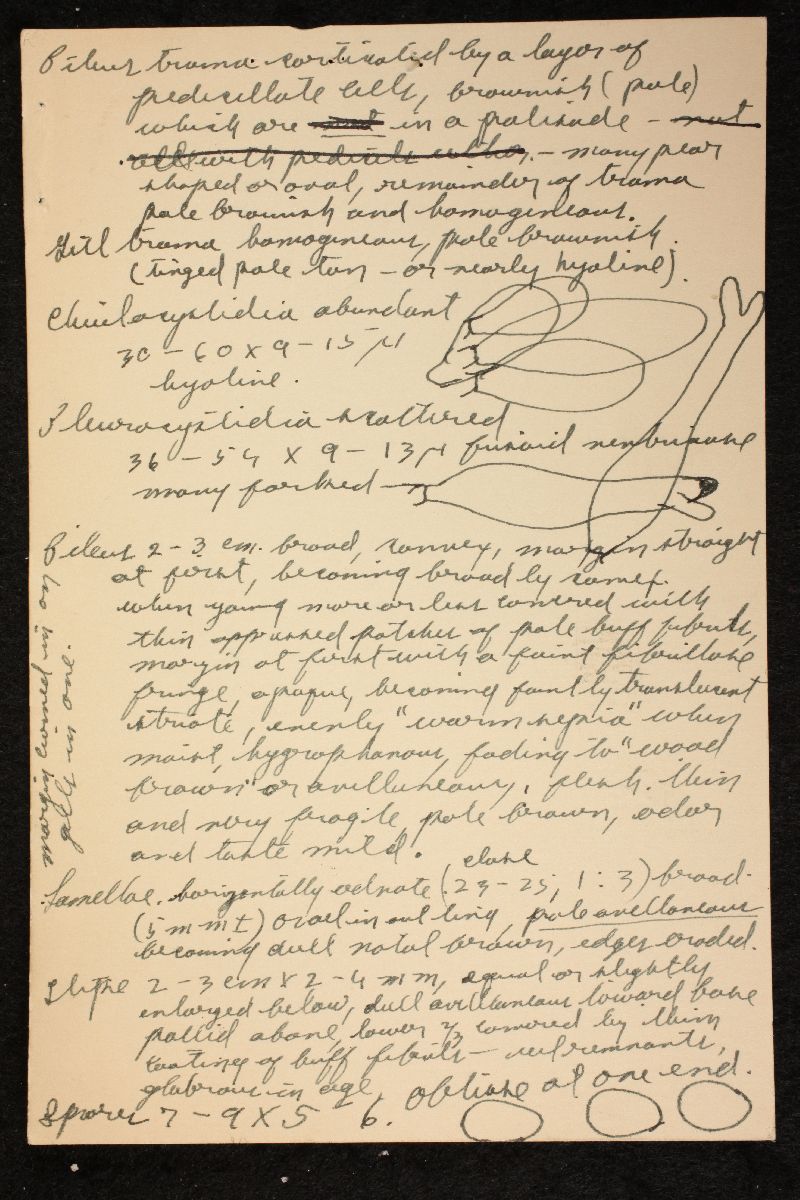 Pileus trama corticated by a layer of
pedicillate cells, brownish (pale)
which are not in a palisade - not
all with pedicels either. - many pear
shaped or oval, remainder of trama
pale brownish and homogeneous.
Gill trama homogeneous, pale brownish.
(tinged pale tan - or nearly hyaline).
Cheilocystidia abundant
30 - 60 x 9 - 15 µ
hyaline.
Pleurocystidia scattered
36 - 54 x 9 - 13 µ fusoid ventricose
many forked -
Pileus 2 - 3 cm. broad, convex, margin straight
at first, becoming broadly convex.
when young more or less covered with
thin appressed patches of pale buff fibrils,
margin at first with a faint fibrillose
fringe, opaque, becoming faintly translucent
striate, evenly "warm sepia" when
moist, hygrophanous, fading to "wood
brown" or avellaneous, flesh thin
and very fragile, pale brown, odor
and taste mild.
margin curved in on
gills in one.
close
Lamellae. horizontally adnate (23 - 25, 1 : 3) broad.
(5 mm ±) oval in outline, pale avellaneous
becoming dull natal brown, edges eroded.
Stipe 2 - 3 cm x 2 - 4 mm, equal or slightly
enlarged below, dull avellaneous toward base
pallid above, lower 2/3 covered by thin
coating of buff fibrils - veil remnants,
glabrous in age,
Spores 7 - 9 x 5 6. obtuse at one end.